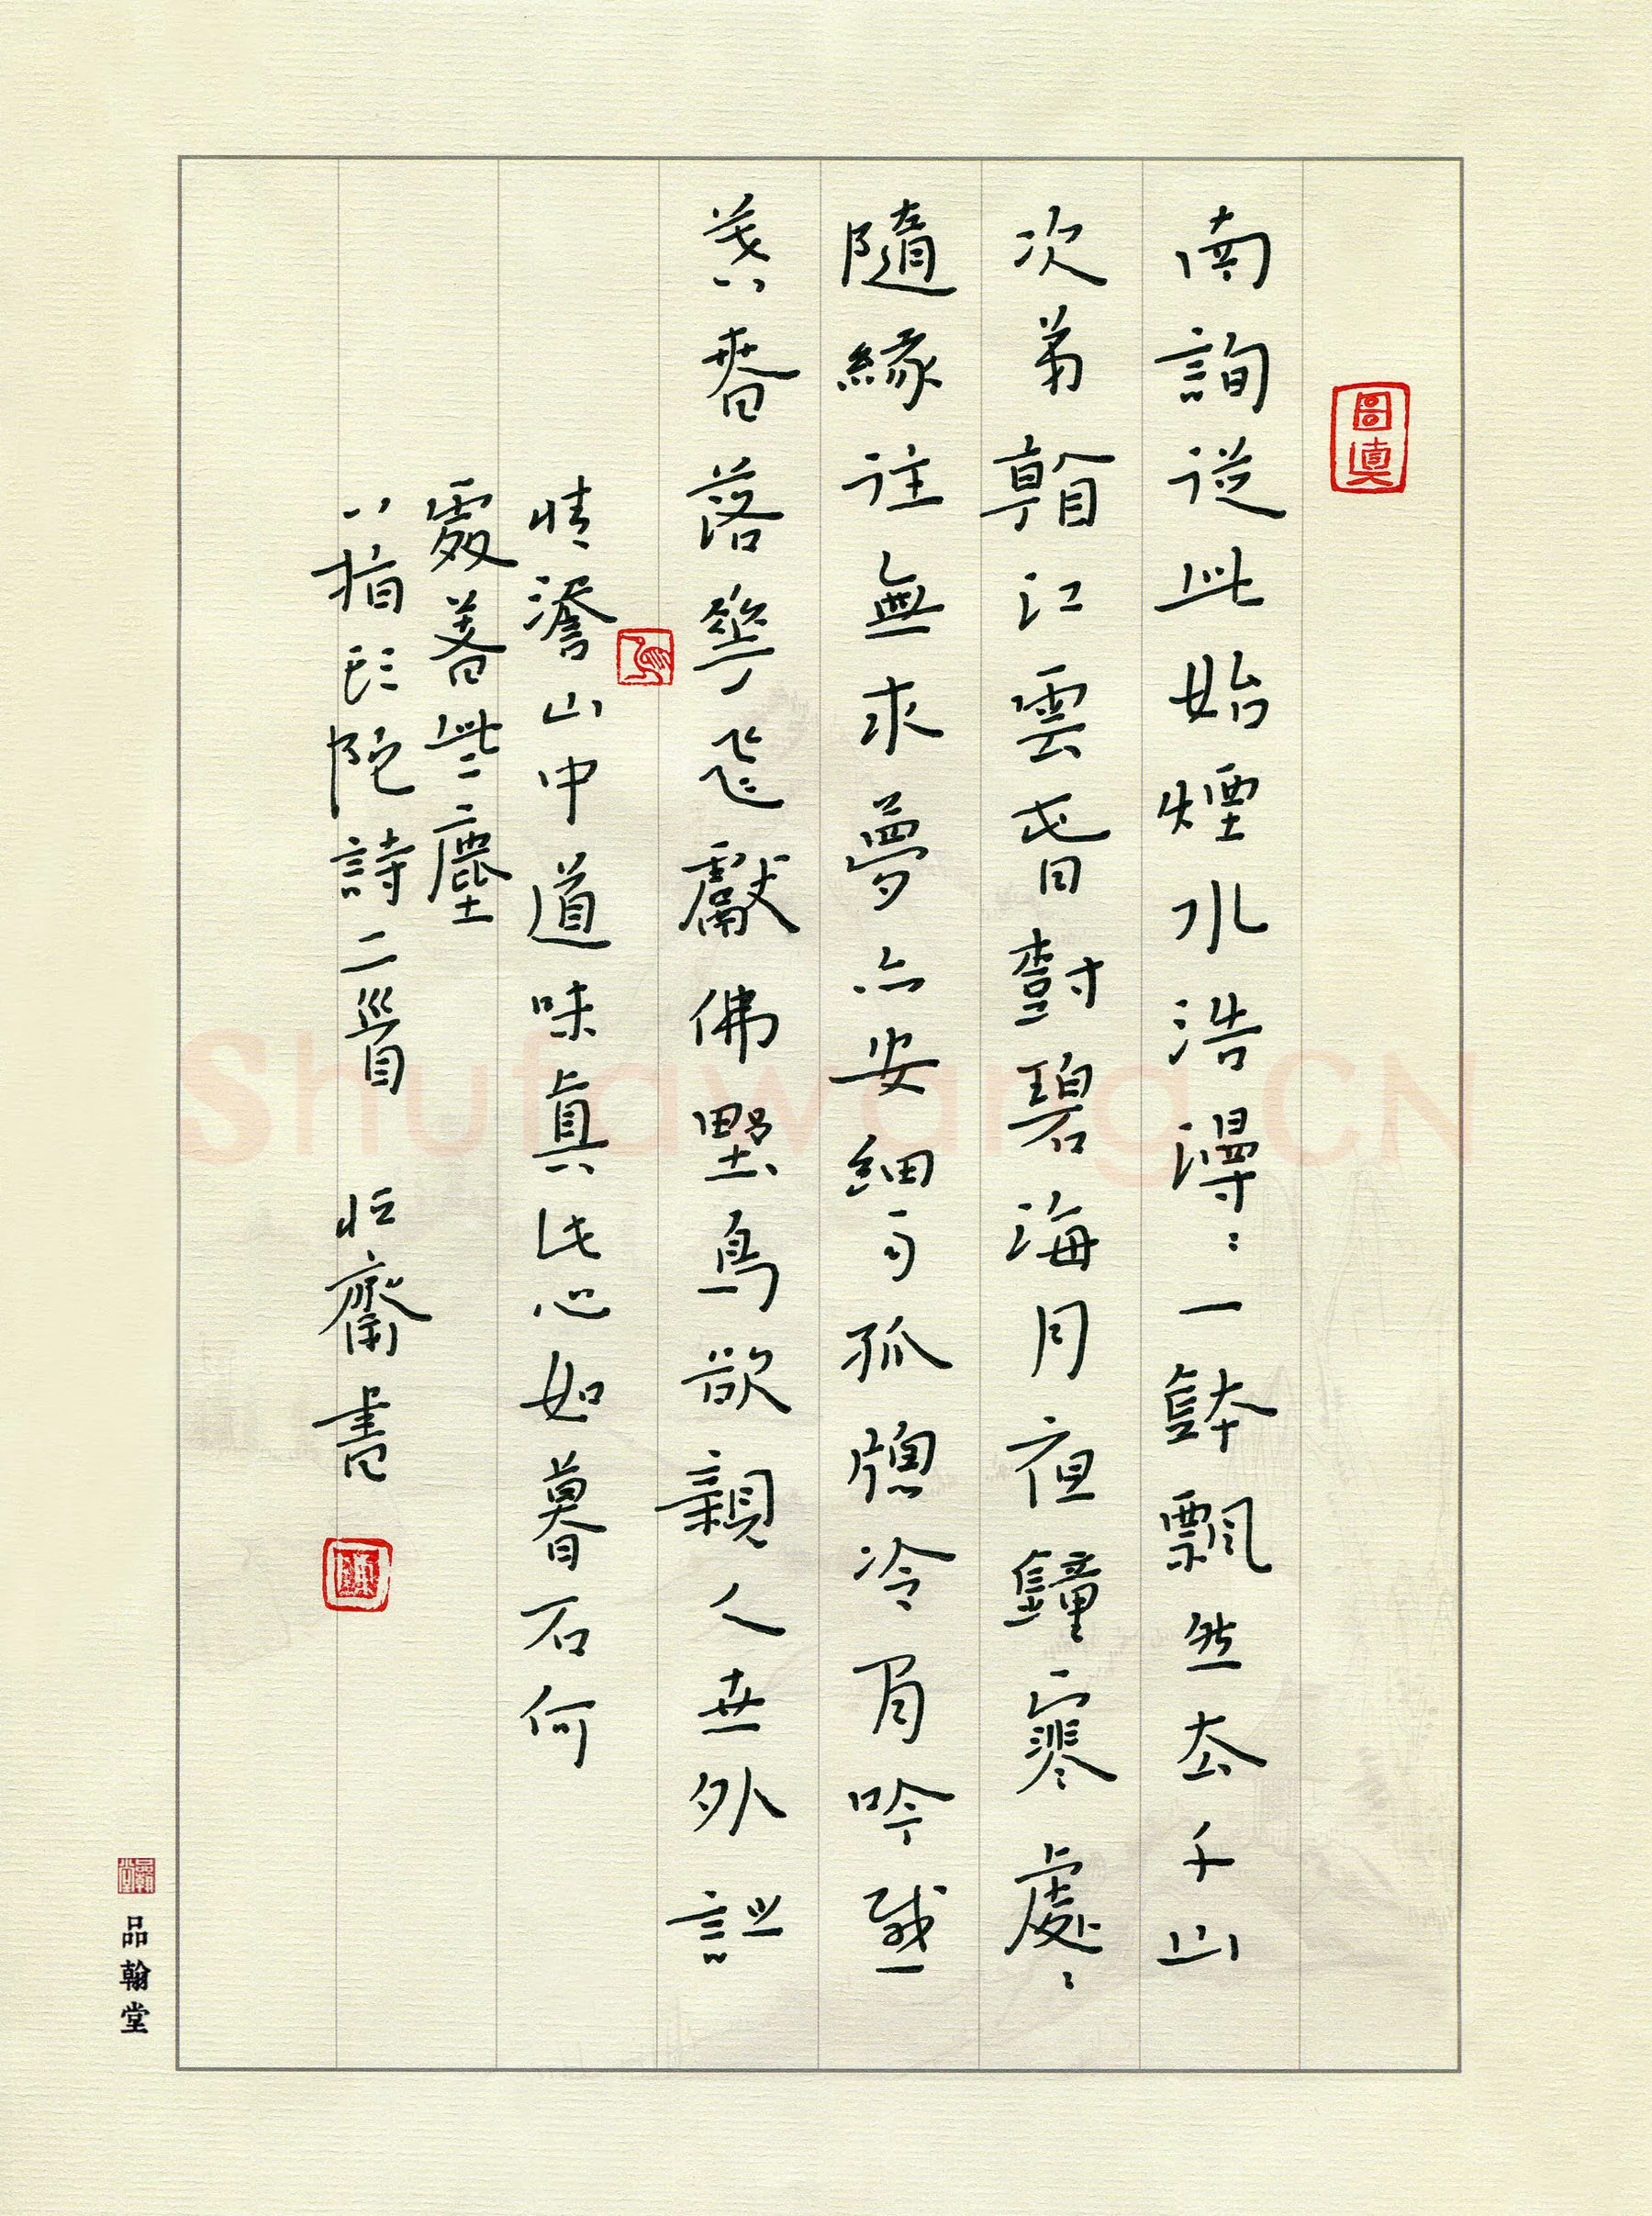 南詢從此始煙水浩漫：一鉢飄然去千山
次弟看江雲旾樹碧海月夜鐘寒處：
隨緣住無求夢亦安細雨孤牕冷閒吟感
莫春落華飛獻佛野鳥欲親人世外詩
情澹山中道味真此心如暮石何
處著些塵
八指頭陀詩二首 恒齋書
品翰堂
Shufawang.CN